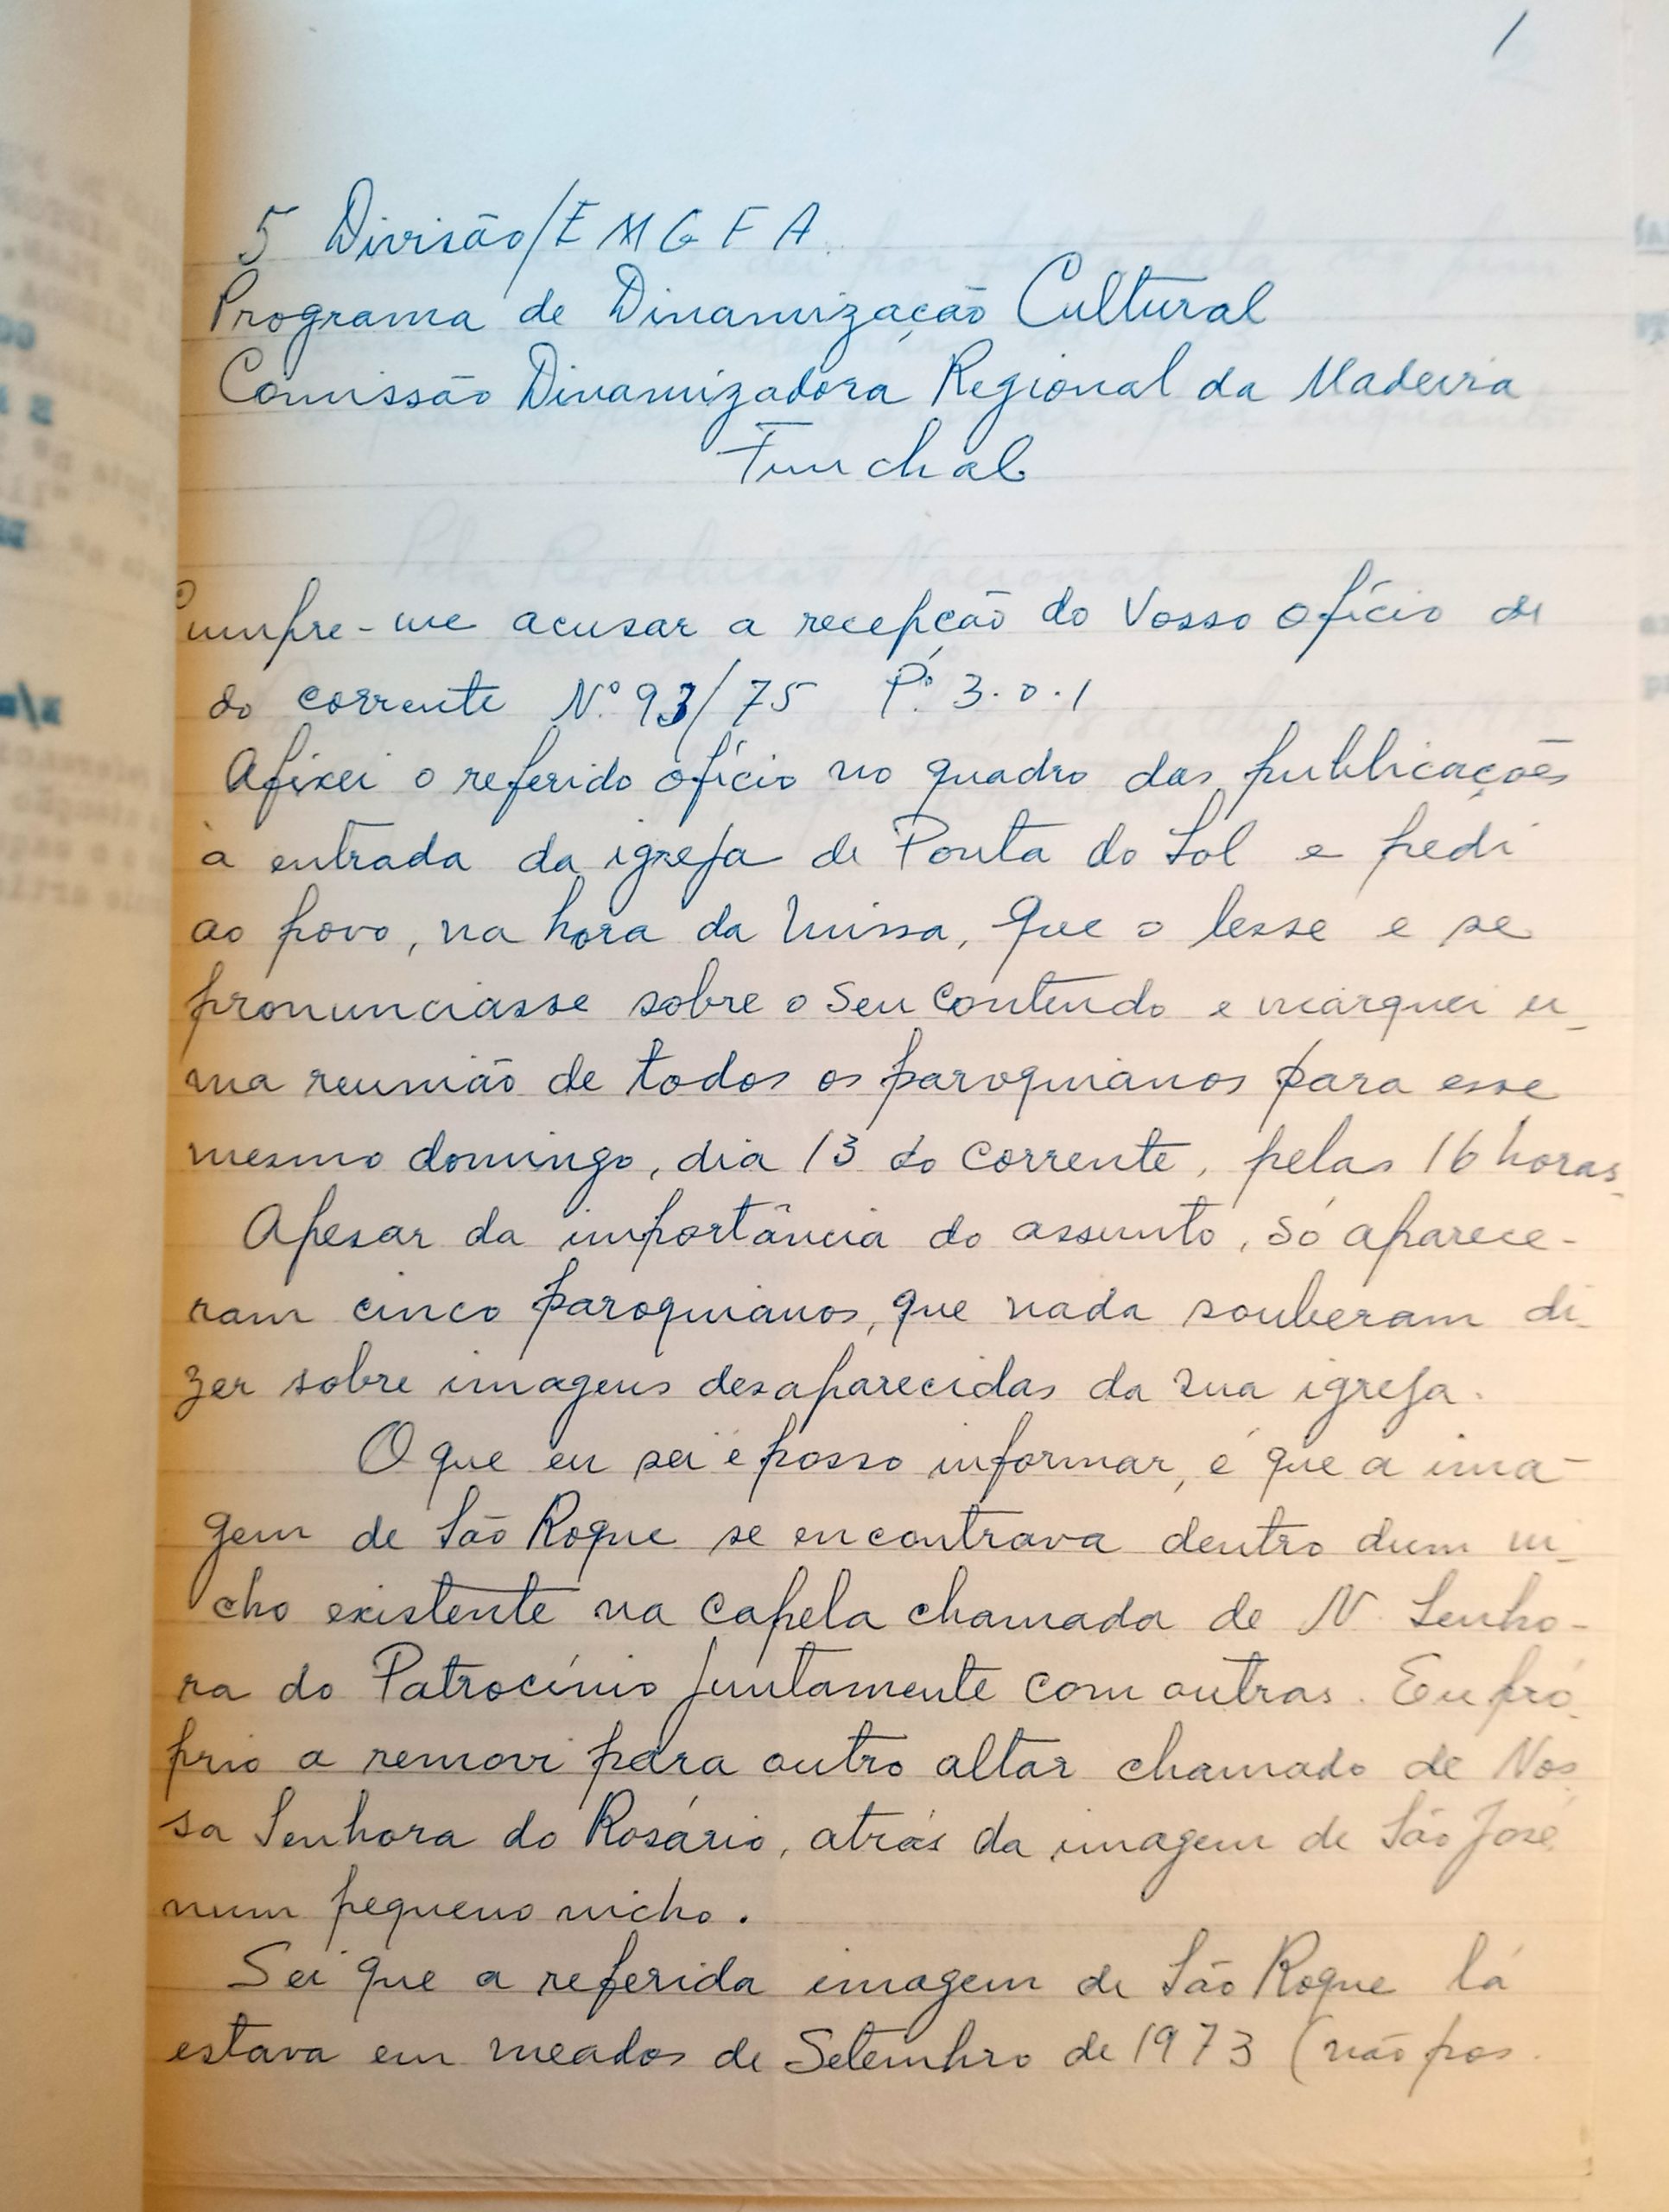 /
5 Divisão/E M G F A
Programa de Dinamização Cultural
Comissão Dinamizadora Regional da Madeira
Funchal
Cumpre-me acusar a recepção do Vosso ofício de
do corrente N.º 93/75 P.º 3.0.1
Afixei o referido ofício no quadro das publicações
à entrada da igreja de Ponta do Sol e pedi
ao povo, na hora da missa, que o lesse e se
pronunciasse sobre o seu contendo e marquei u-
ma reunião de todos os paroquianos para esse
mesmo domingo, dia 13 do corrente, pelas 16 horas.
Apesar da importância do assunto, só aparece-
ram cinco paroquianos, que nada souberam di-
zer sobre imagens desaparecidas da sua igreja.
O que eu sei e posso informar, é que a ima-
gem de São Roque se encontrava dentro dum ni-
cho existente na capela chamada de N. Senho-
ra do Patrocínio juntamente com outras. Eu pró-
prio a removi para outro altar chamado de Nos-
sa Senhora do Rosário, atrás da imagem de São José
num pequeno nicho.
Sei que a referida imagem de São Roque lá
estava em meados de Setembro de 1973 (não pos-